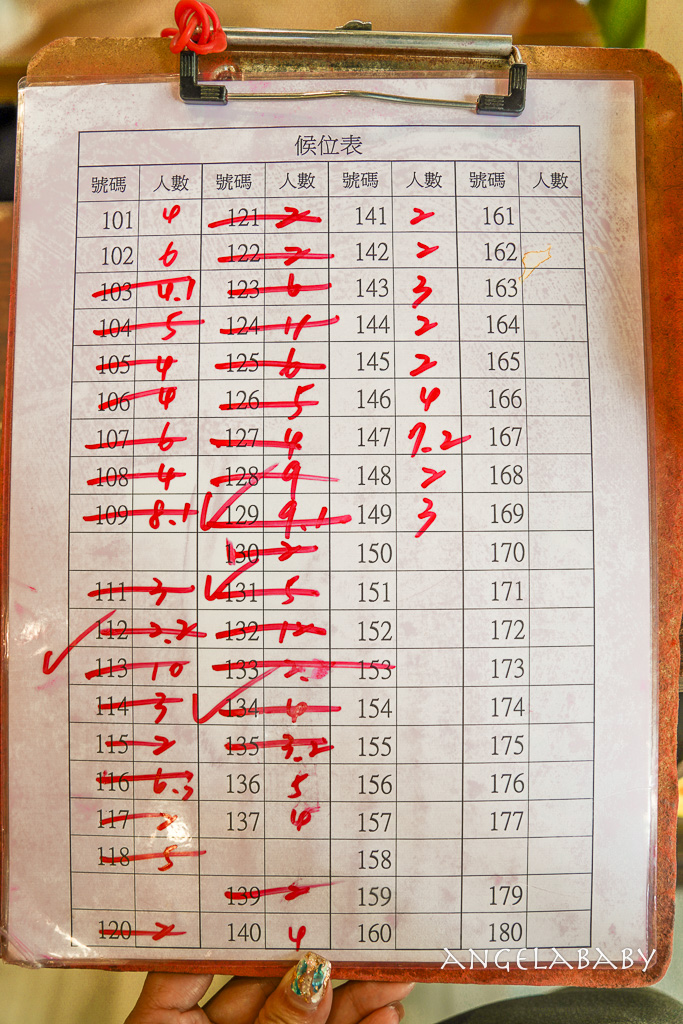 候位表
號碼 人數 號碼 人數 號碼 人數 號碼 人數
101 4 121 2 141 2 161
102 6 122 2 142 2 162
103 4.1 123 6 143 3 163
104 5 124 4 144 2 164
105 4 125 6 145 2 165
106 4 126 5 146 4 166
107 6 127 4 147 7.2 167
108 4 128 9 148 2 168
109 8.1 129 9.1 149 3 169
130 2 150 170
111 3 131 5 151 171
112 2.2 132 12 152 172
113 10 133 153 173
114 3 134 4 154 174
115 2 135 3.2 155 175
116 6.3 136 5 156 176
117 2 137 4 157 177
118 5 158
139 2 159 179
120 2 140 4 160 180
ANGELABABY